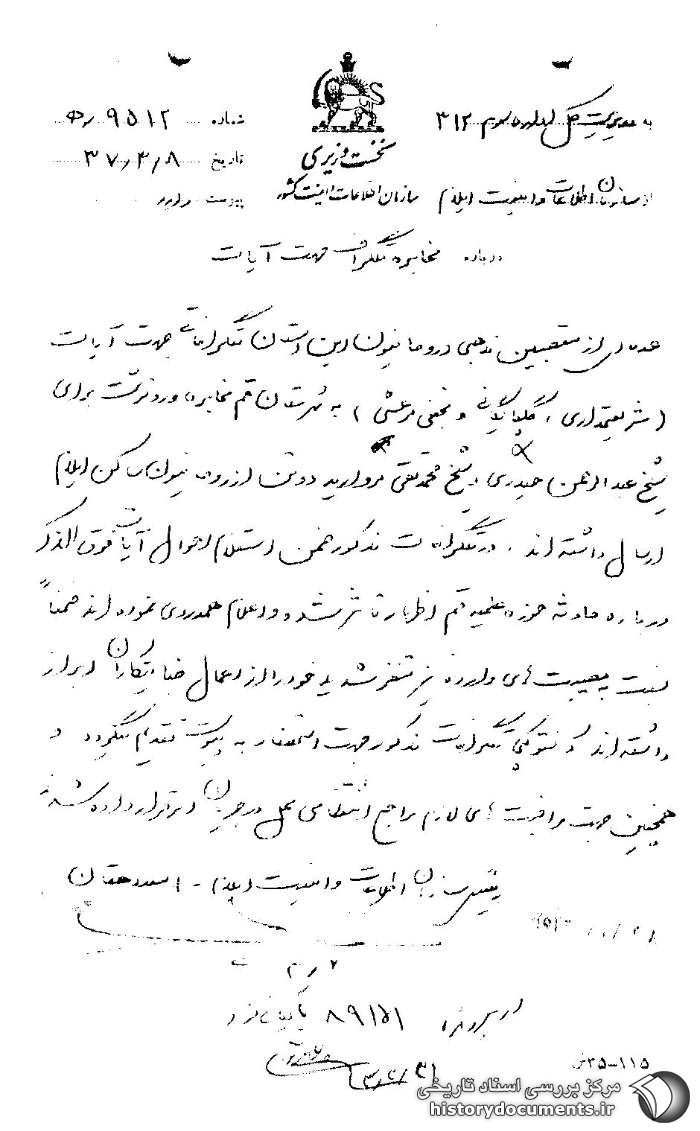 به مدیریت کل اداره سوم ۳۱۲
از سازمان اطلاعات و امنیت ایلام
نخست وزیری
سازمان اطلاعات و امنیت کشور
شماره ۹۵۱۲/ ه
تاریخ ۳۷/۳/۸
پیوست دارد
درباره مخابره تلگراف جهت آیات
عده‌ای از متعصبین مذهبی و روحانیون این استان تلگرافاتی جهت آیات
(شریعتمداری، گلپایگانی و نجفی مرعشی) به شهرستان قم مخابره و رونوشت برای
شیخ عبدالرحمن حیدری و شیخ محمدتقی مروارید دو تن از روحانیون ساکن ایلام
ارسال داشته‌اند. در تلگرافات مذکور ضمن استعلام احوال آیات فوق‌الذکر
درباره حادثه حوزه علمیه قم اظهار تأثر شده و اعلام همدردی نموده‌اند ضمناً
نسبت به مصیبت‌های وارده نیز تنفر شدید خود را از اعمال جنایتکاران ابراز
داشته‌اند که فتوکپی تلگرافات مذکور جهت استحضار به پیوست تقدیم میگردد و
همچنین جهت مراقبت‌های لازم مراجع انتظامی محل در جریان امر قرار داده شدند
رئیس سازمان اطلاعات و امنیت ایلام -
در پرونده ۸۹۱۵۱ بایگانی شود
۳۵-۱۱۵ش
مرکز بررسی اسناد تاریخی
historydocuments.ir